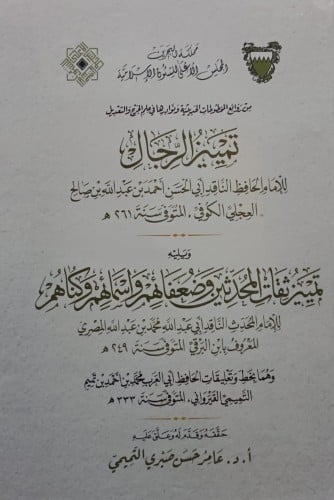 مملكة البحرين
المجلس الأعلى للشئون الإسلامية
من روائع المخطوطات الحديثية ونوادرها في علم الجرح والتعديل
تمييز الرجال
للإمام الحافظ الناقد أبي الحسن أحمد بن عبد الله بن صالح
العجلي الكوفي، المتوفى سنة ٢٦١ هـ
ويليه
تمييز ثقات المحدثين وضعفائهم وأسمائهم وكناهم
للإمام المحدث الناقد أبي عبد الله محمد بن عبد الله المصري
المعروف بابن البرقي المتوفى سنة ٢٤٩ هـ
وهما بخط وتعليقات الحافظ أبي العرب محمد بن أحمد بن تميم
التميمي القيرواني، المتوفى سنة ٣٣٣ هـ
حققه وقدم له وعلق عليه
أ.د. عامر حسن صبري التميمي